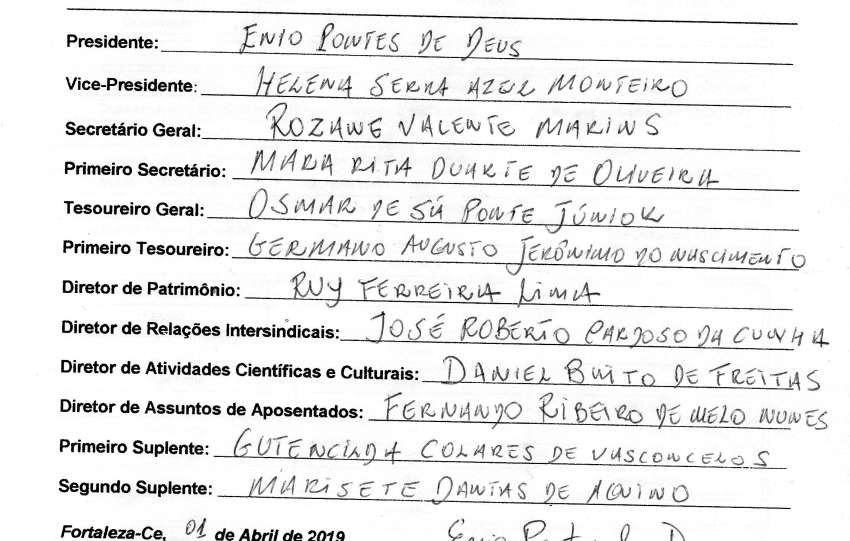 Presidente: ENIO PONTES DE DEUS
Vice-Presidente: HELENA SERRA AZUL MONTEIRO
Secretário Geral: ROZANE VALENTE MARINS
Primeiro Secretário: MARA RITA DUARTE DE OLIVEIRA
Tesoureiro Geral: OSMAR DE SÁ PONTE JÚNIOR
Primeiro Tesoureiro: GERMANO AUGUSTO JERÔNIMO DO NASCIMENTO
Diretor de Patrimônio: RUY FERREIRA LIMA
Diretor de Relações Intersindicais: JOSÉ ROBERTO CARDOSO DA CUNHA
Diretor de Atividades Científicas e Culturais: DANIEL BRITO DE FREITAS
Diretor de Assuntos de Aposentados: FERNANDO RIBEIRO DE MELO NUNES
Primeiro Suplente: COLARES DE VASCONCELOS
Segundo Suplente: MARISETE DANTAS DE AQUINO
Fortaleza-Ce, 01 de Abril de 2019 Enio